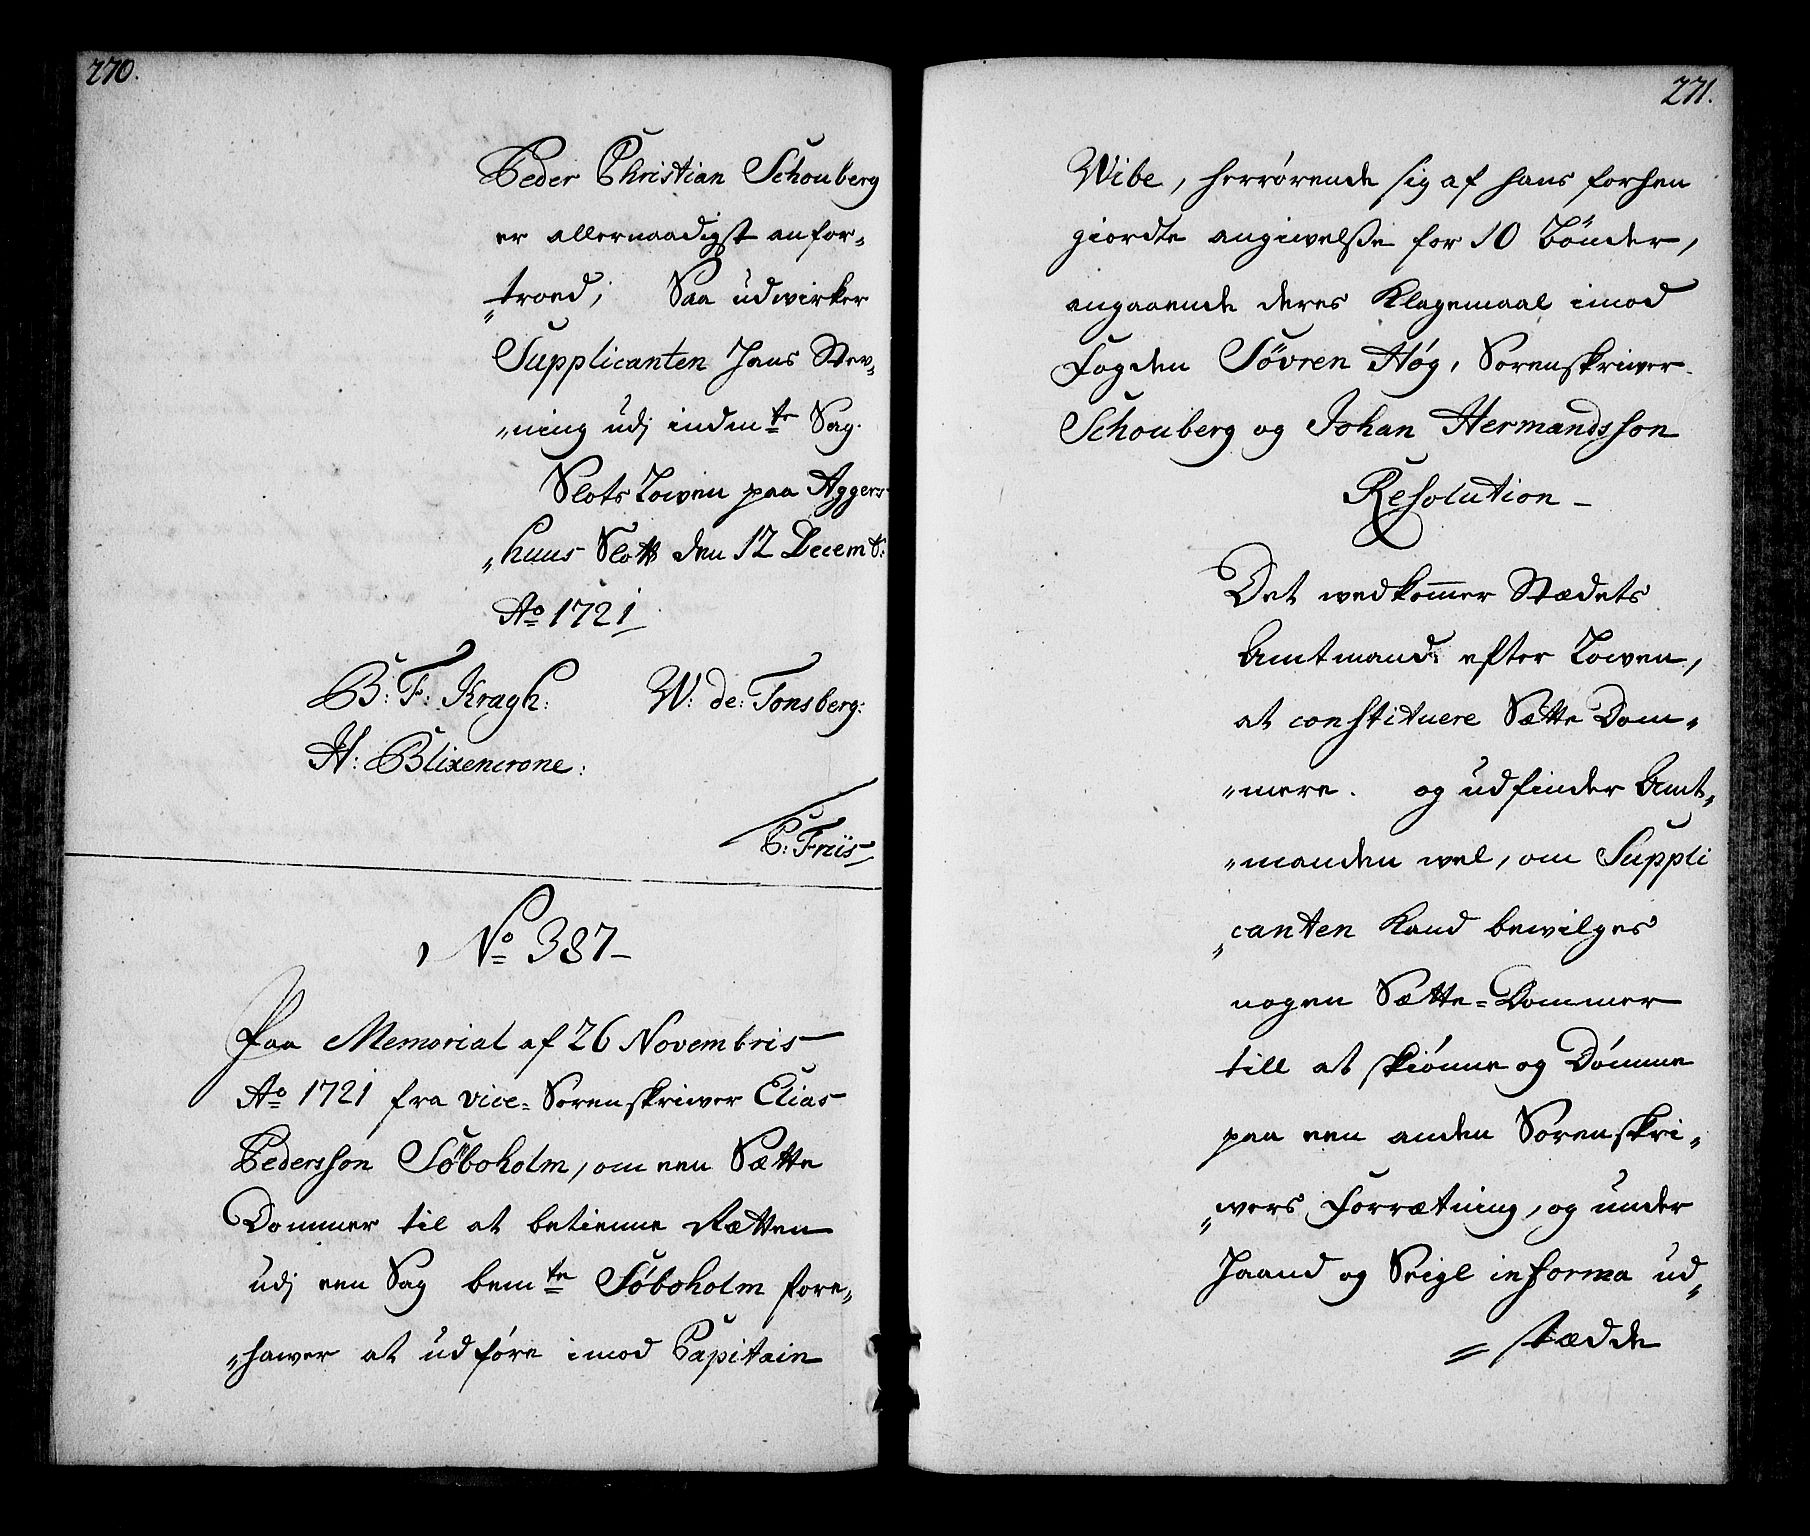 270.
Peder Christian Schouberg
er allernaadigst anfor„
„troed; Saa udwirker
Supplicanten Hans Stev„
„ning udj indmte Sag.
Slots Lowen paa Aggers
„huus Slott den 12 Decembr:
Ao 1721
B: F: Kragh: W: de: Tonsberg:
H: Blixencrone:
C: Friis
No 387
Paa Memorial af 26 Novembris
Ao 1721 fra vice-Sorenskriwer Elias
Pedersson Söboholm, om een Sætte
Dommer til at betienne Rætten
udj een Sag bemte Söboholm fore„
„hawer at udføre imod Capitain
271.
Wibe, herrørende sig af hans forhen
giordte angiwelsse for 10 Bönder,
angaaende deres Klagemaal imod
Fogden Sövren Høg, Sorenskriwer
Schouberg og Johan Hermandsson
Resolution
Det wedkommer Stædets
Amtmand efter Lowen,
at constituere Sætte Dom„
„mere. og udfinder Amt„
„manden wel, om Suppli
„canten Kand bewilges
nogen Sætte-Dommer
till at skiønne og Dømme
paa een anden Sorenskri„
„wers Forrætning, og under
Haand og Seigl in forma ud„
stædde